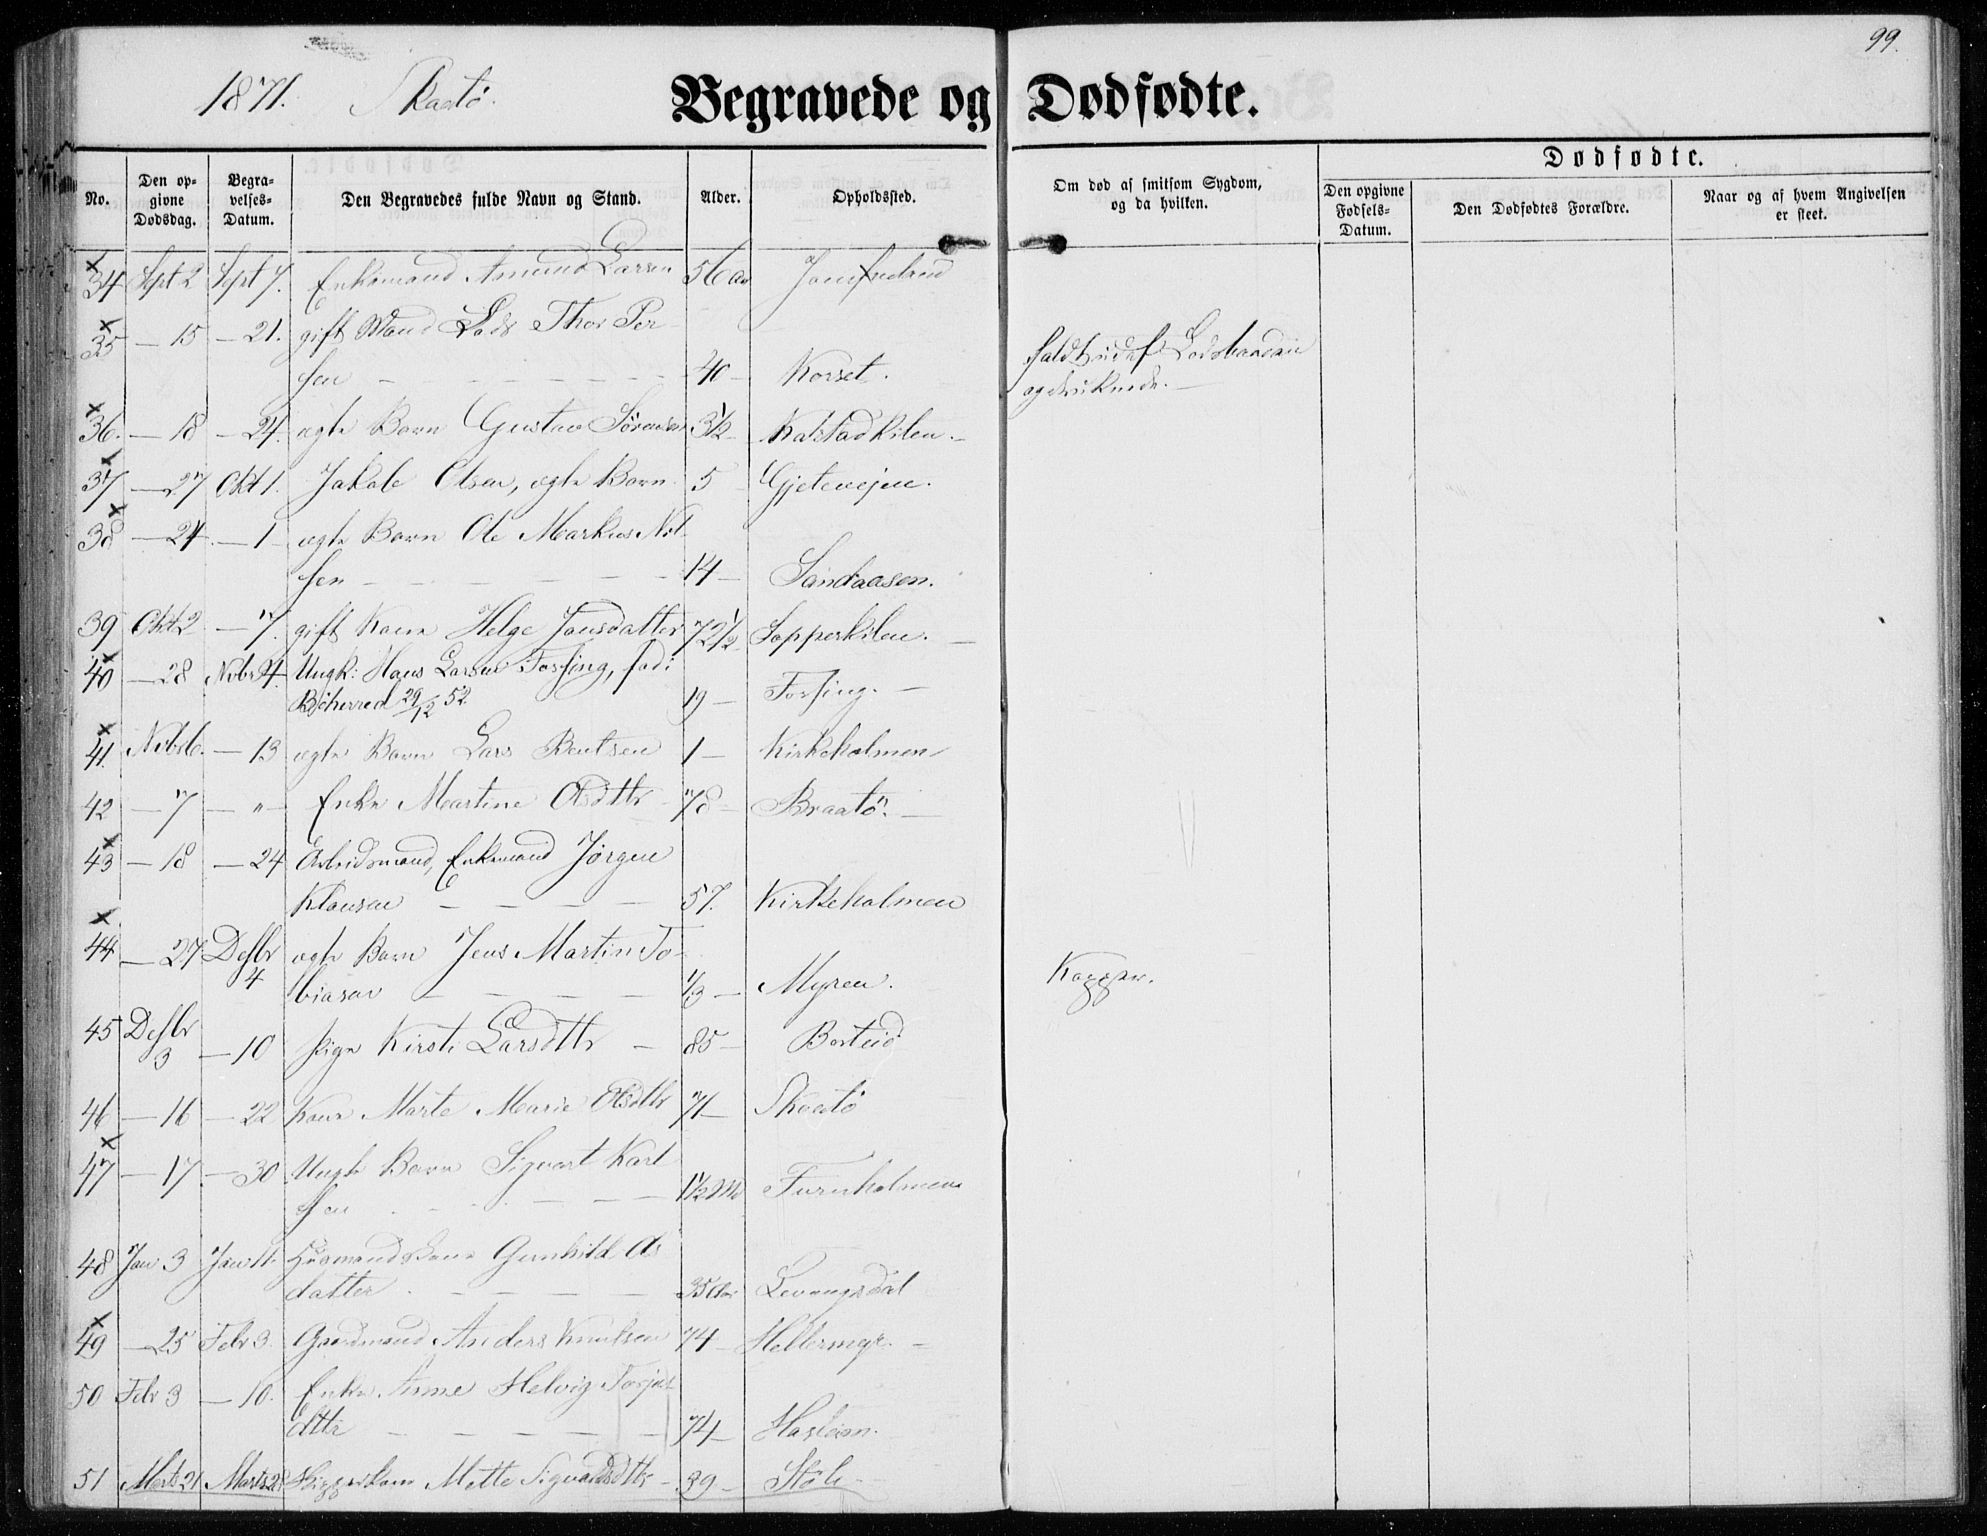 99.
1871. Skaatö.
Begravede og Dødfødte.
No.
Den opgivne Dødsdag.
Begravelses-Datum.
Den Begravedes fulde Navn og Stand.
Alder.
Opholdssted.
Om død af smitsom Sygdom, og da hvilken.
Dødfødte.
Den opgivne Fødsels-Datum.
Den Dødfødtes Forældre.
Naar og af hvem Angivelsen er skeet.
34 Sept 2 Sept 7. Enkemand Amund Larsen 56 aar
35 — 15 — 21. gift Mand Lods Thor Per-
sen — 40 — Korset. faldt ud af Lodsbaaden
og druknede. —
36. — 18 — 24. ægte Barn Gustav Sørensen 3½ Kalstadkilen. —
37 — 27 Okt 1. Jakob Olsen, ægte Barn 5 Gjetevejen.
38 — 24. — 1 ægte Barn Ole Markus Nil-
sen — 14 — Sandaasen.
39 Okt 2 — 7. gift Kone Helge Jansdatter 72½ Sopperkilen. —
40 — 28 Novbr 4. Ungk: Hans Larsen Forsing, fød i
29/12 52 19 — Forsing. —
41. Novbr 6. — 13 ægte Barn Lars Bentsen 1 — Kirkeholmen
42 — 7 — „ — Enke Martine Olsdtr 78 — Braatö. —
43 — 18 — 24 Arbeidsmand, Enkemand Jörgen
Klausen — 57. Kirkeholmen
44 — 27 Desbr 4 ægte Barn Jens Martin To-
biasen — 1/3 — Myren. Kopper.
45 Desbr 3 — 10 Pige Kirsti Larsdtr — 85 — Borteid
46 — 16 — 22 Kone Marte Marie Olsdtr 71 — Skaatö
47 — 17. — 30 Uægte Barn Sigvart Karl
sen — 1½ Md Furuholmen
48 Jan 3 Jan 11. Husmandskone Gunhild Ols
datter — 35 Aar Levangsdal
49 — 25 Febr 3. Gaardmand Anders Knutsen 74 — Hellermyr. —
50 Febr 3 — 10. Enke Anne Helvig Torjus
dttr — 74 —
51 Marts 21 Marts 28 Skipperkone Mette Sigvaldsdtr — 39 — Stöle